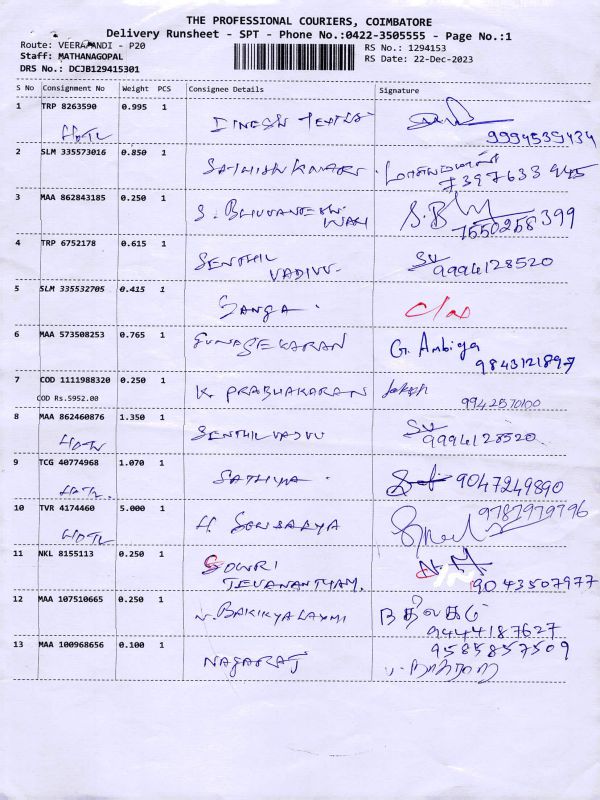 THE PROFESSIONAL COURIERS, COIMBATORE
Delivery Runsheet - SPT - Phone No.:0422-3505555 - Page No.:1
Route: VEERAPANDI - P20
Staff: MATHANAGOPAL
DRS No.: DCJB129415301
RS No.: 1294153
RS Date: 22-Dec-2023
S No Consignment No Weight PCS Consignee Details Signature
1 TRP 8263590 0.995 1 DINESH
9994539434
2 SLM 335573016 0.850 1
7397633945
3 MAA 862843185 0.250 1 S. BHUVANESH
7550258399
4 TRP 6752178 0.615 1 SENTHIL
VADIVU. 9994128520
5 SLM 335532705 0.415 1 GANGA
6 MAA 573508253 0.765 1 GUNASEKARAN G. Ambiga
9843121897
7 COD 1111988320 0.250 1 K. PRABHAKARAN
COD Rs.5952.00 9942570100
8 MAA 862460876 1.350 1 SENTHIL VADIVU SV
9994128520
9 TCG 40774968 1.070 1 SATHIYA 9047249890
10 TVR 4174460 5.000 1 9787979796
11 NKL 8155113 0.250 1 GOWRI
JEVANANTHAM. 9043507977
12 MAA 107510665 0.250 1 N. BAKIKYALAXMI
9444187627
13 MAA 100968656 0.100 1 NAGARAJ 9585857509